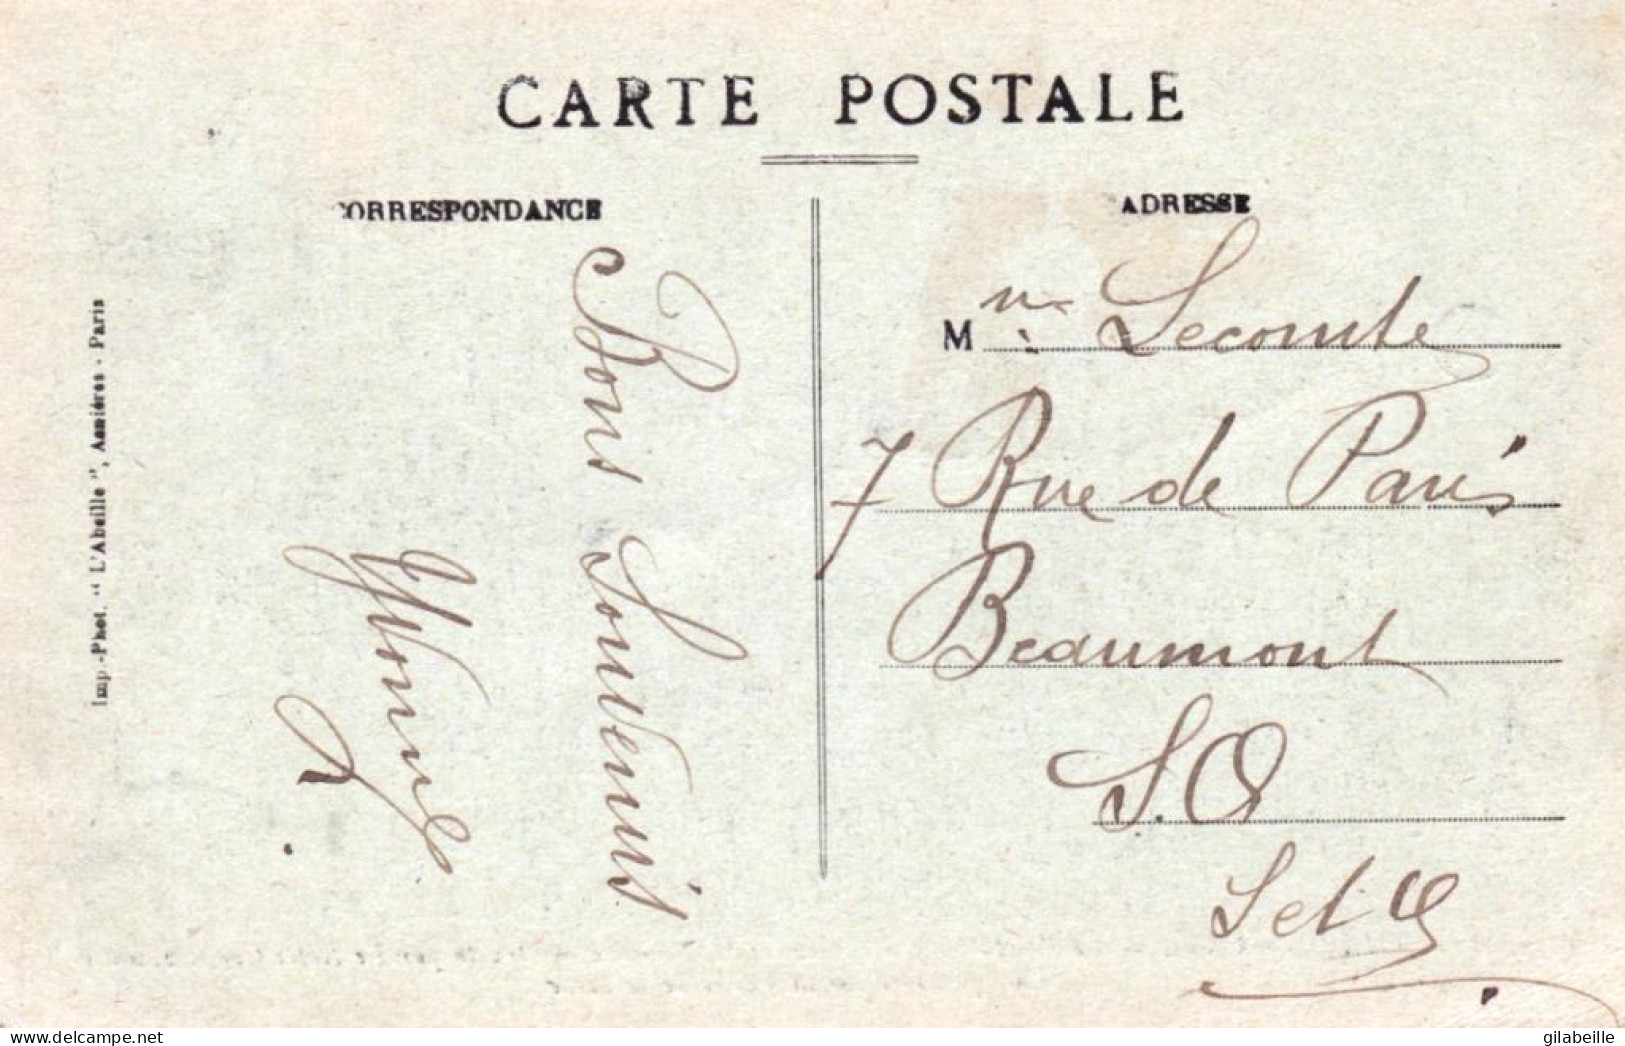 CARTE POSTALE
CORRESPONDANCE
ADRESSE
Imp.-Phot. " L'Abeille ", Asnières - Paris
Bons Souvenirs
Yvonne
M me Lecomte
7 Rue de Paris
Beaumont
S.O
Set O
www.delcampe.net
gilabeille